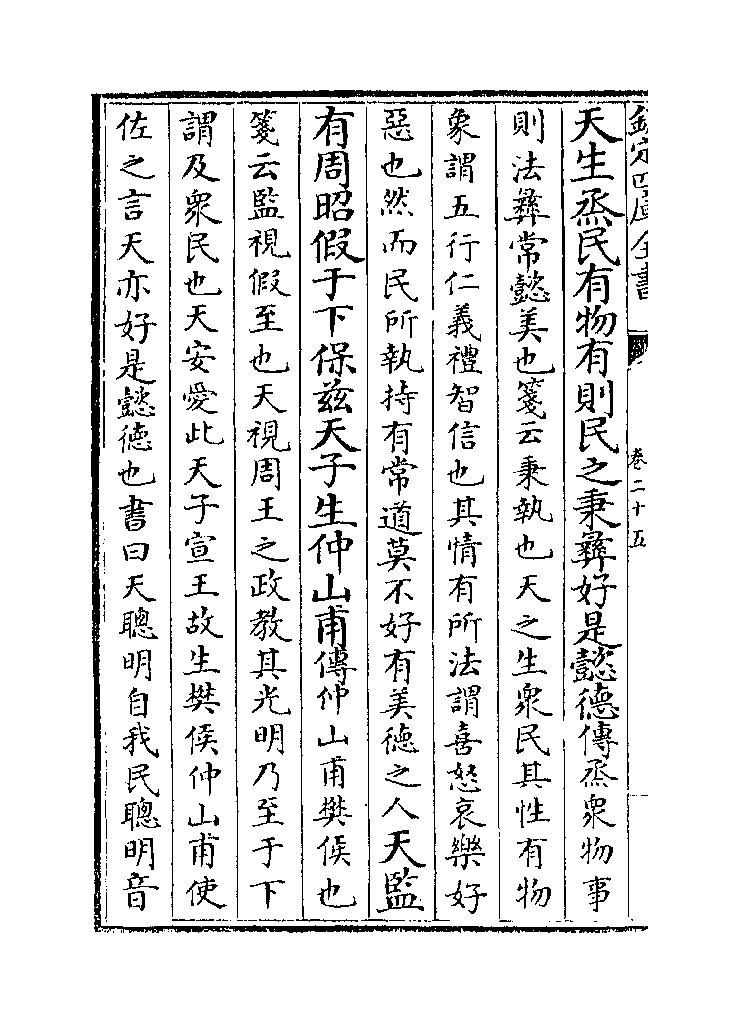 欽定四庫全書
卷二十五
天生烝民有物有則民之秉彝好是懿德傳烝衆物事
則法彝常懿美也箋云秉執也天之生衆民其性有物
象謂五行仁義禮智信也其情有所法謂喜怒哀樂好
惡也然而民所執持有常道莫不好有美德之人天監
有周昭假于下保兹天子生仲山甫傳仲山甫樊侯也
箋云監視假至也天視周王之政教其光明乃至于下
謂及衆民也天安愛此天子宣王故生樊侯仲山甫使
佐之言天亦好是懿德也書曰天聰明自我民聰明音